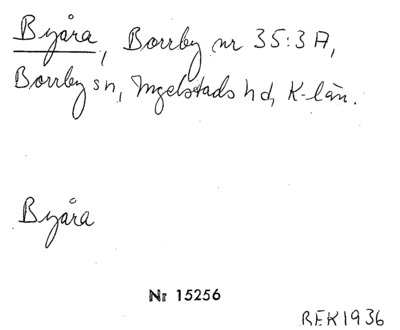 Byåra, Borrby nr 35:3 A,
Borrby sn, Ingelstads hd, K-län.
Byåra
Nr 15256
BEK1936